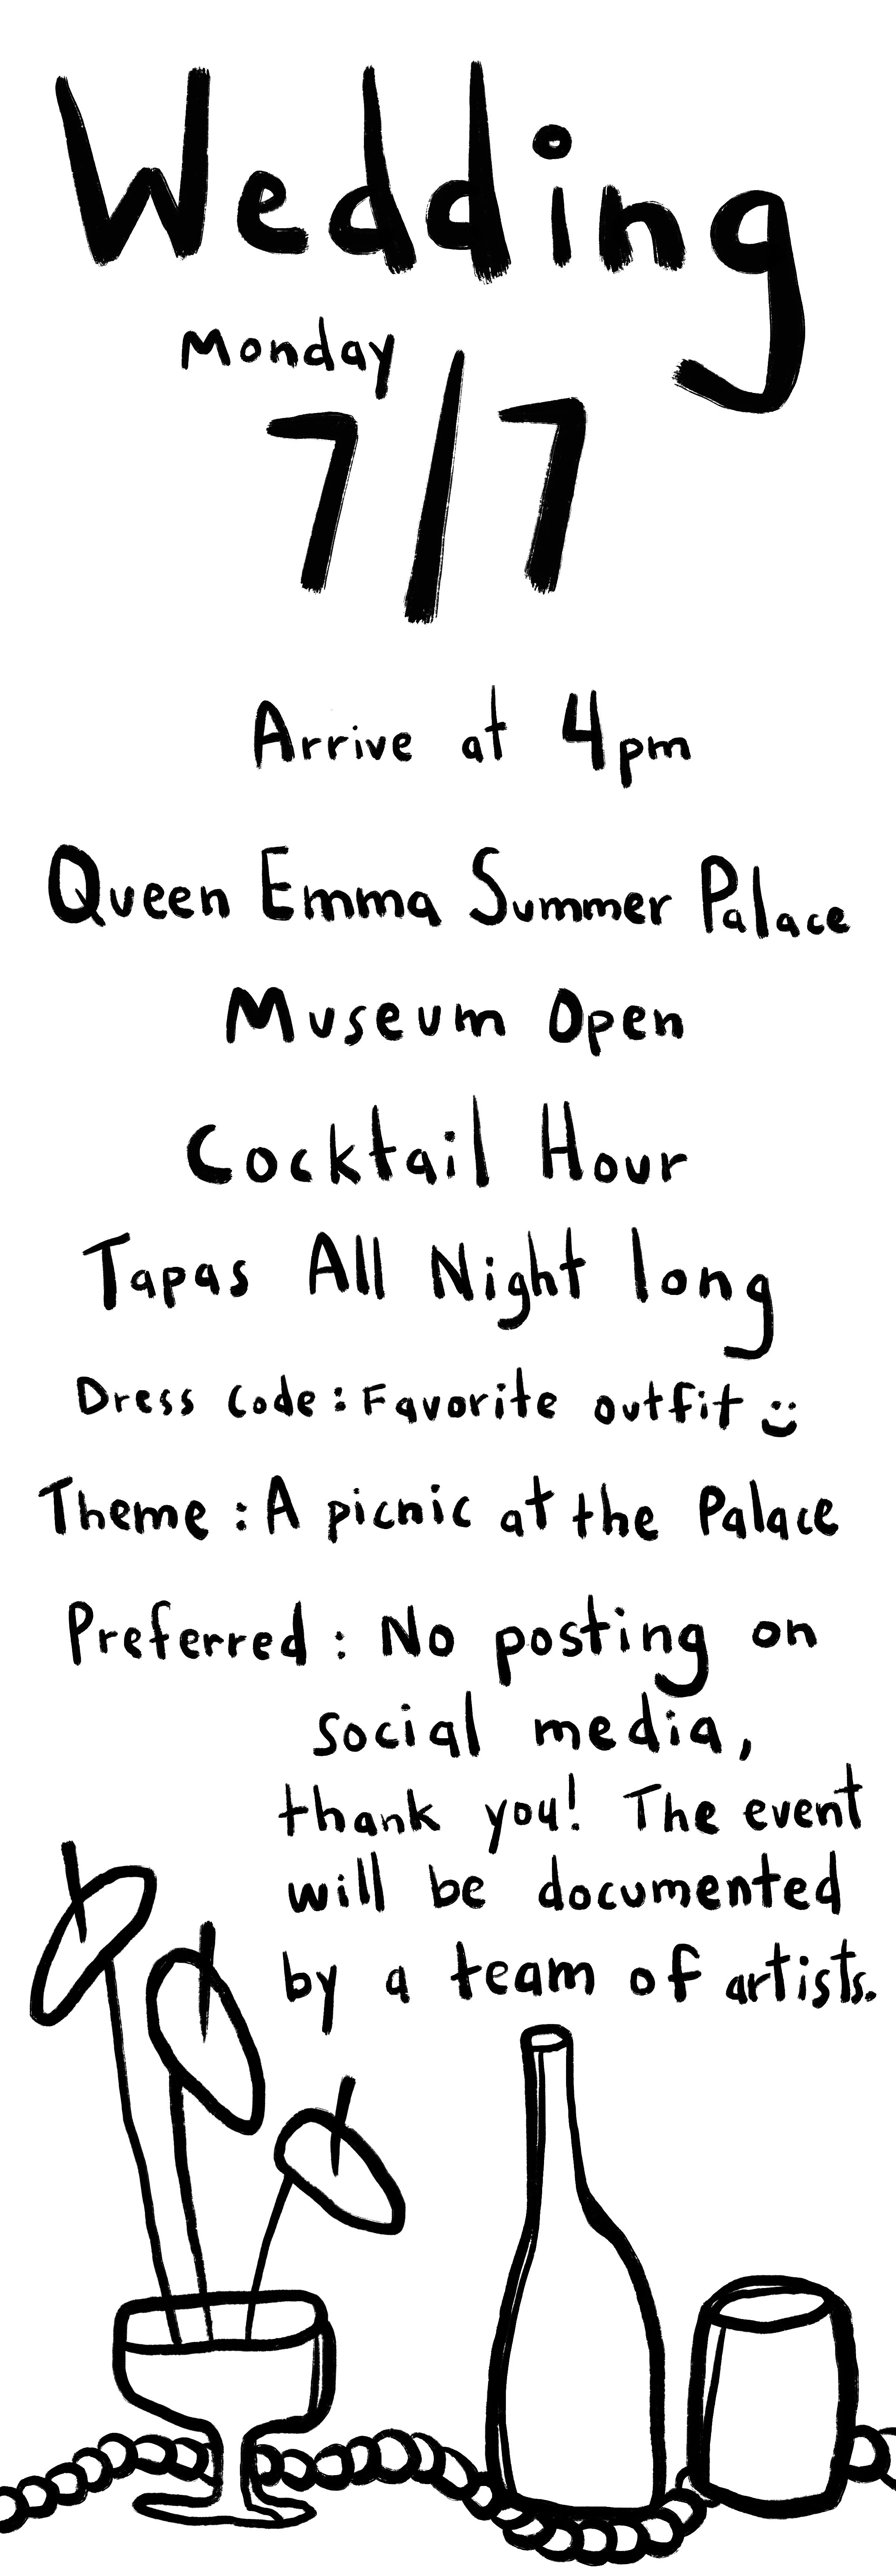 Wedding
Monday
7/7
Arrive at 4pm
Queen Emma Summer Palace
Museum Open
Cocktail Hour
Tapas All Night long
Dress Code : Favorite outfit :)
Theme : A picnic at the Palace
Preferred : No posting on
social media,
thank you! The event
will be documented
by a team of artists.